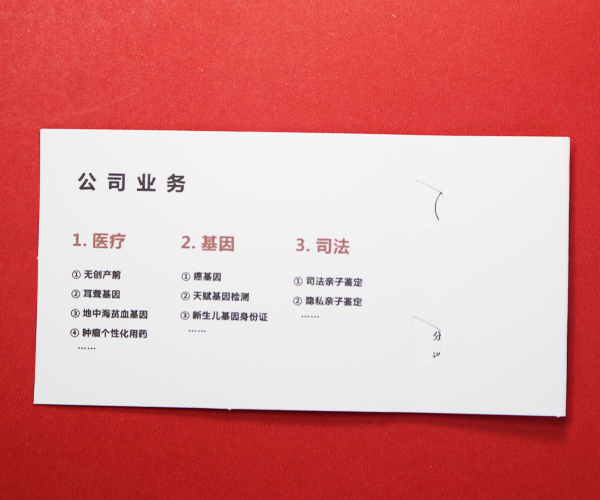 公司业务
1. 医疗
① 无创产前
② 耳聋基因
③ 地中海贫血基因
④ 肿瘤个性化用药
……
2. 基因
① 癌基因
② 天赋基因检测
③ 新生儿基因身份证
……
3. 司法
① 司法亲子鉴定
② 隐私亲子鉴定
……
分